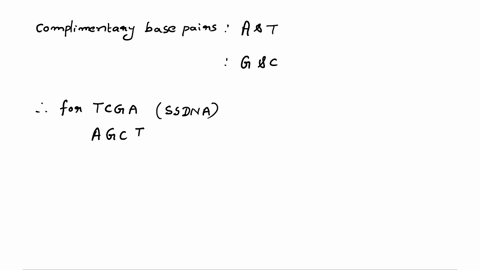 Complimentary base pairs : A & T
: G & C
∴ for TCGA (SSDNA)
AGCT